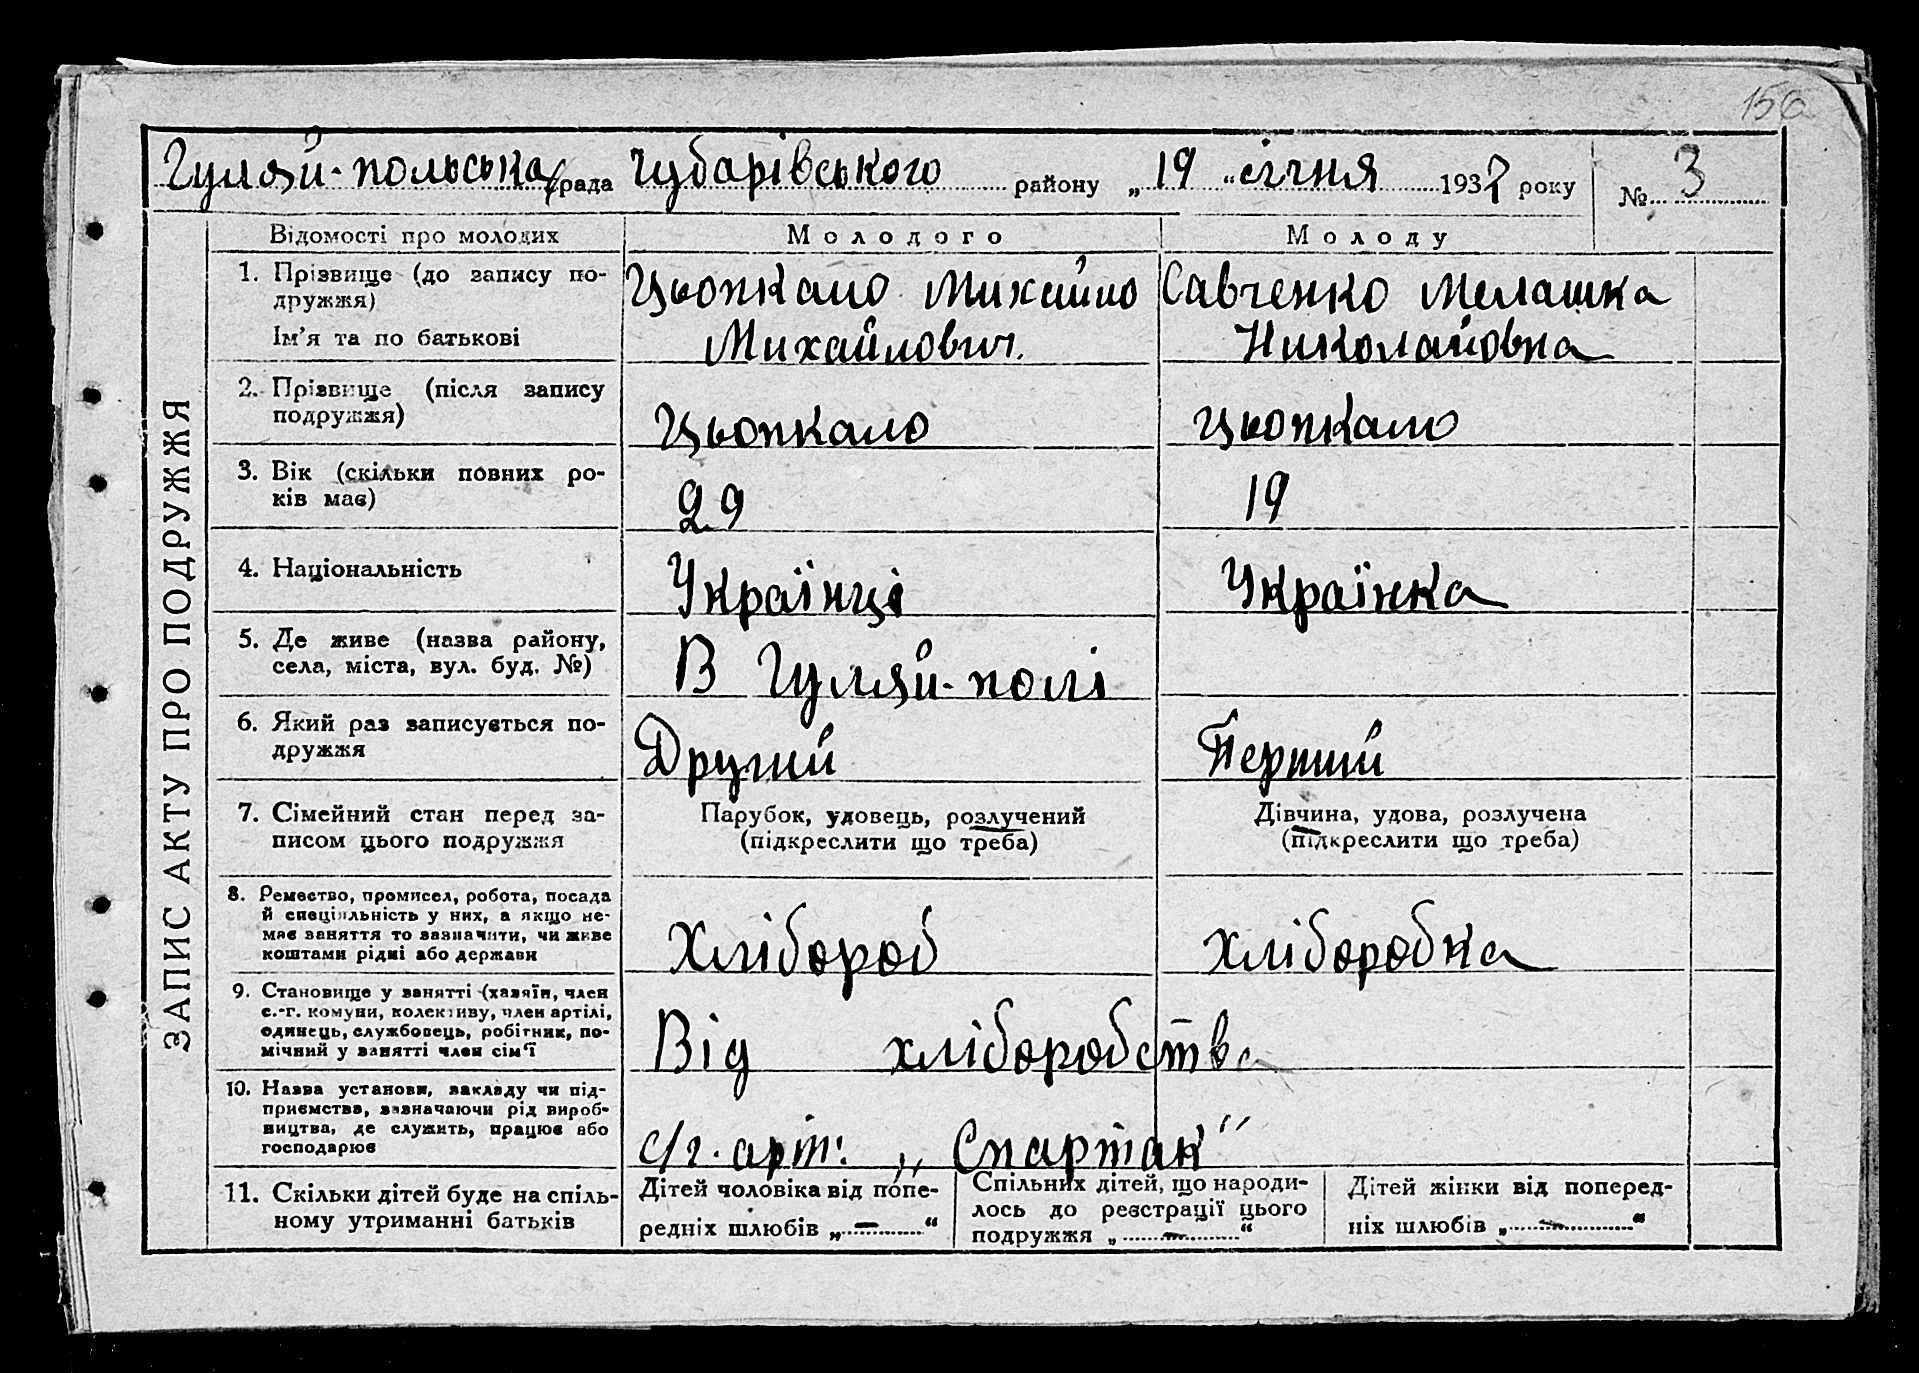 156
Гуляй-польська с/рада Чубарівського району „19“ січня 1937 року № 3
ЗАПИС АКТУ ПРО ПОДРУЖЖЯ
Відомості про молодих Молодого Молоду
1. Прізвище (до запису по-
дружжя)
Ім'я та по батькові
Цьопкало Михайло
Михайлович.
Савченко Мелашка
Николайовна
2. Прізвище (після запису
подружжя)
Цьопкало
Цьопкало
3. Вік (скільки повних ро-
ків має)
29
19
4. Національність
Українці
Українка
5. Де живе (назва району,
села, міста, вул. буд. №)
В Гуляй-полі
6. Який раз записується по-
дружжя
Другий
Перший
7. Сімейний стан перед за-
писом цього подружжя
Парубок, удовець, розлучений
(підкреслити що треба)
Дівчина, удова, розлучена
(підкреслити що треба)
8. Ремество, промисел, робота, посада
й спеціяльність у них, а якщо не-
має заняття то зазначити, чи живе
коштами рідні або держави
Хлібороб
хліборобка
9. Становище у занятті (хазяїн, член
с.-г. комуни, колективу, член артілі,
одинець, службовець, робітник, по-
мічний у занятті член сім'ї
Від хліборобства
10. Назва установи, закладу чи під-
приємства, зазначаючи рід вироб-
ництва, де служить, працює або
господарює
с/г. арт. „Спартак“
11. Скільки дітей буде на спіль-
ному утриманні батьків
Дітей чоловіка від попе-
редніх шлюбів „—“
Спільних дітей, що народи-
лось до реєстрації цього
подружжя „—“
Дітей жінки від поперед-
ніх шлюбів „—“